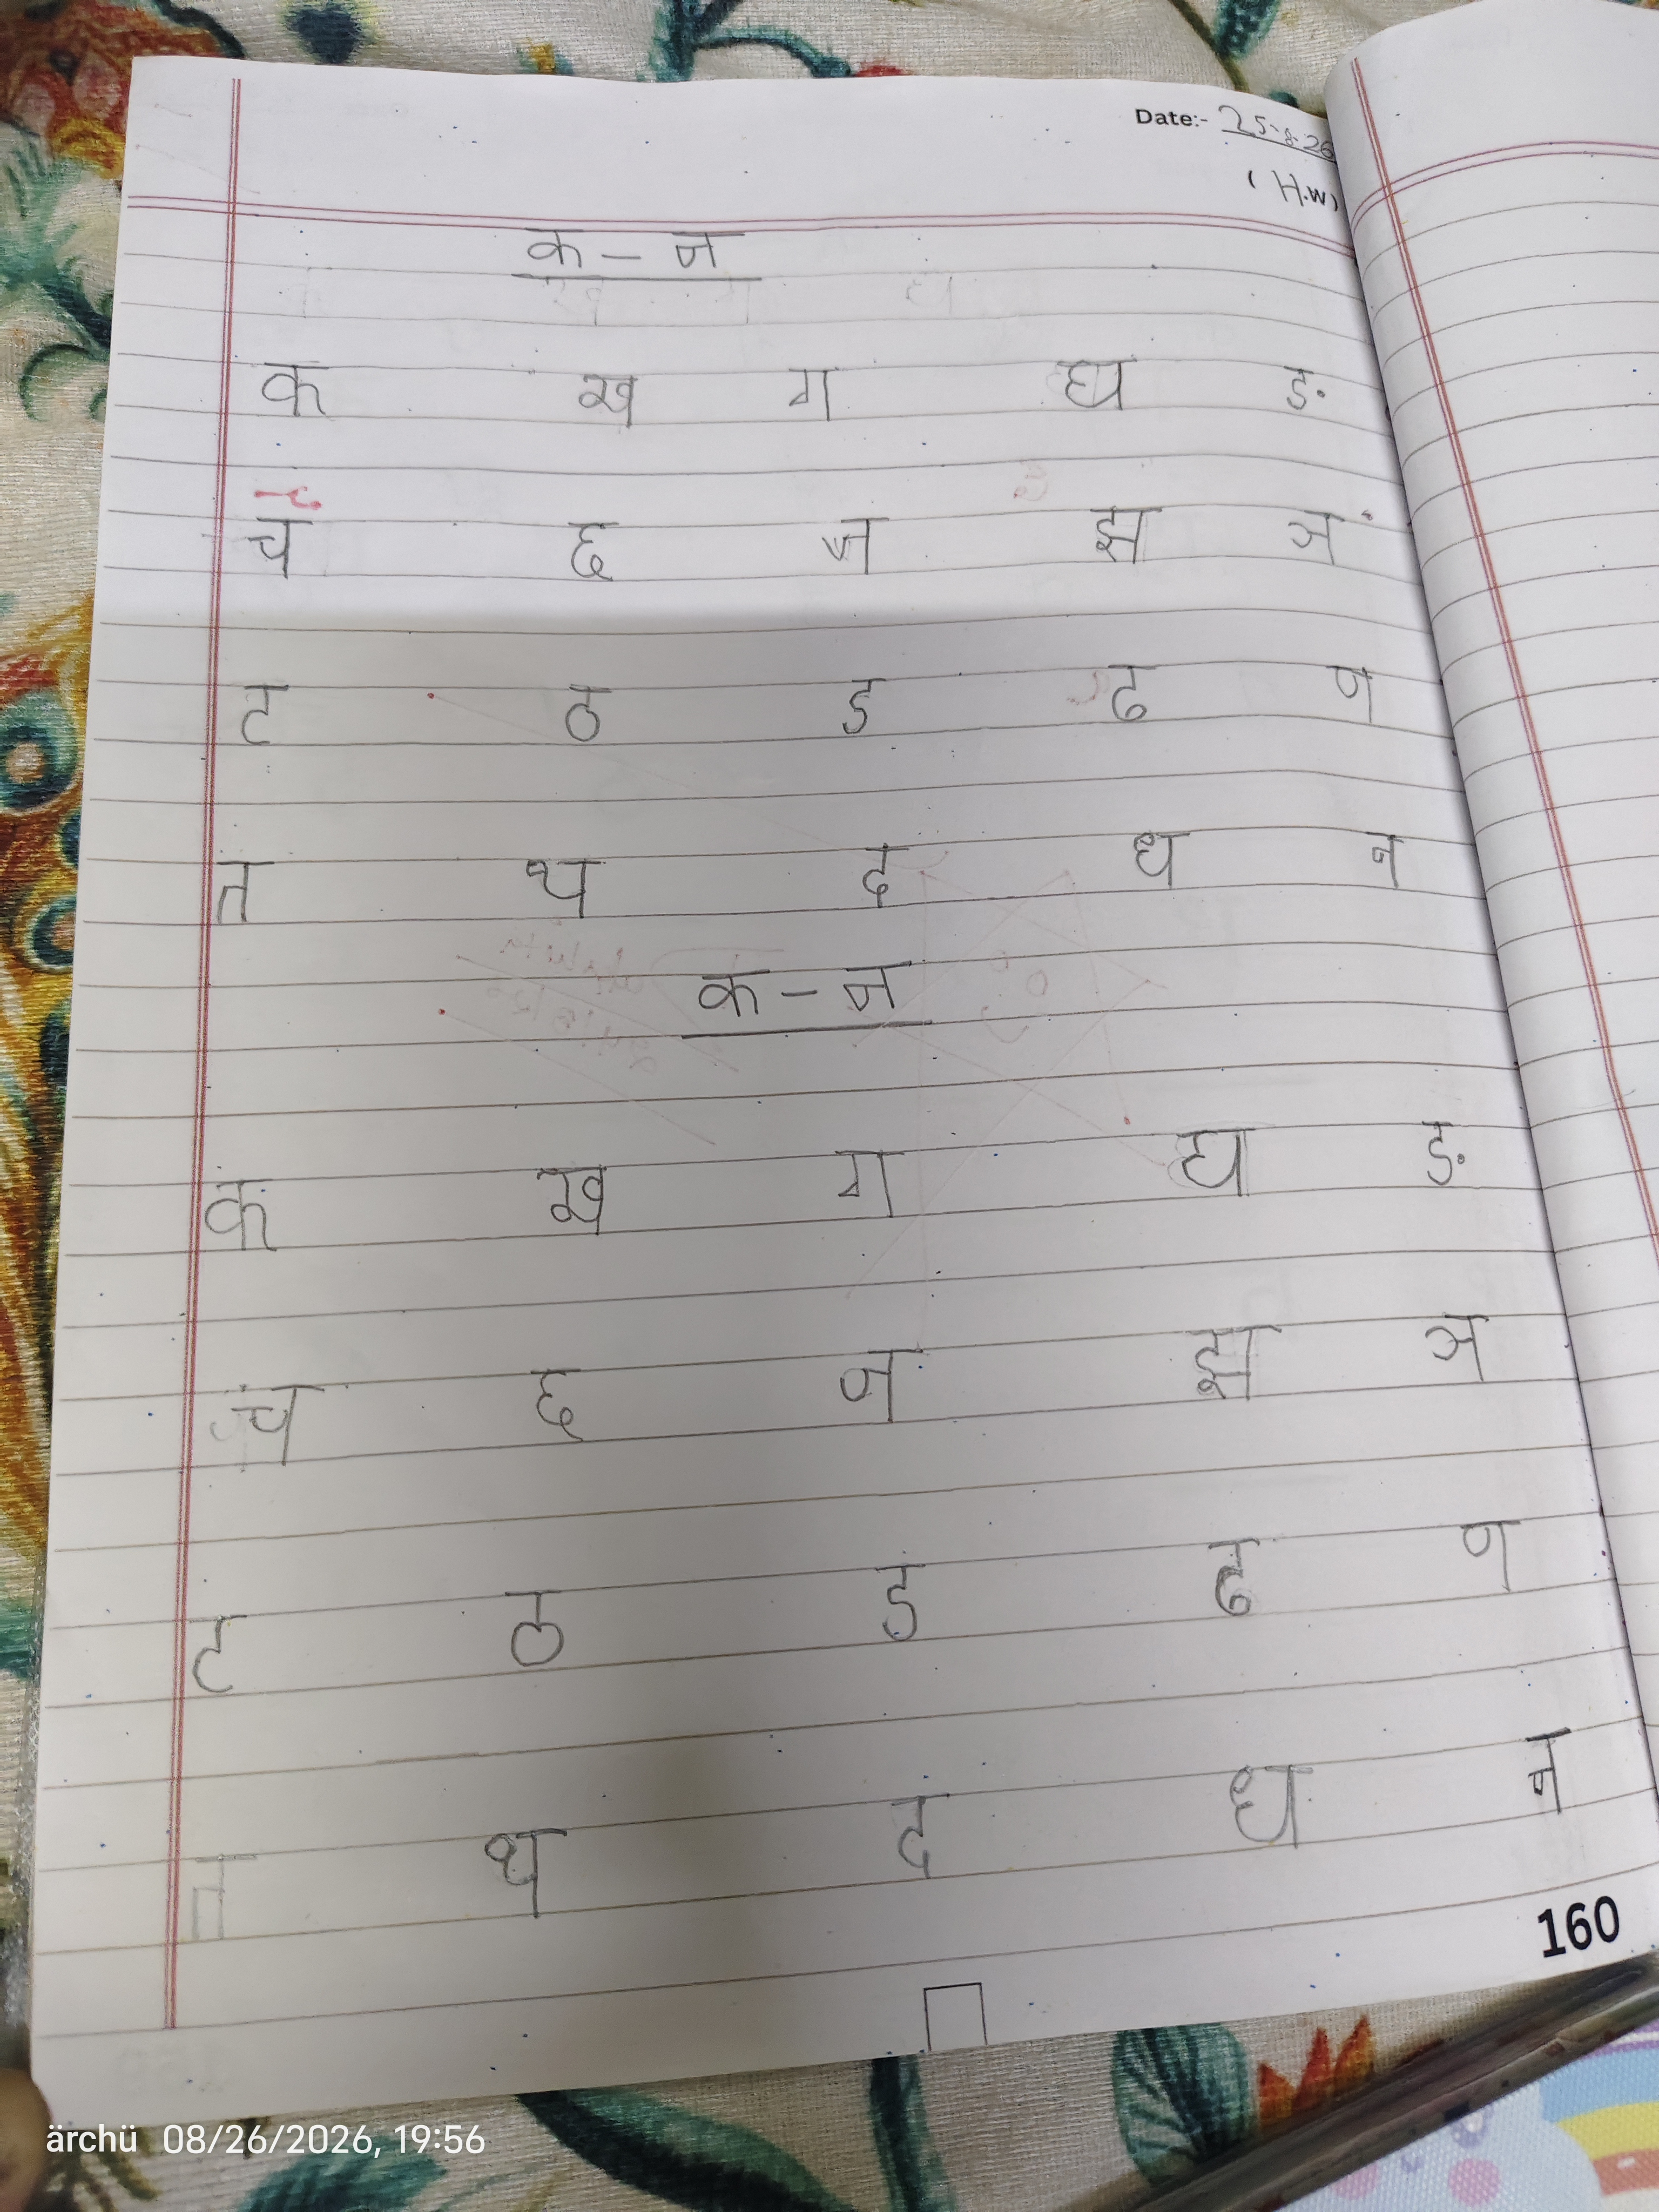 Date:- 25-8-26
(H.W)
क - न
क ख ग घ ङ
च छ ज झ ञ
ट ठ ड ढ ण
त थ द ध न
क - न
क ख ग घ ङ
च छ ज झ ञ
ट ठ ड ढ ण
त थ द ध न
160
ärchü 08/26/2026, 19:56